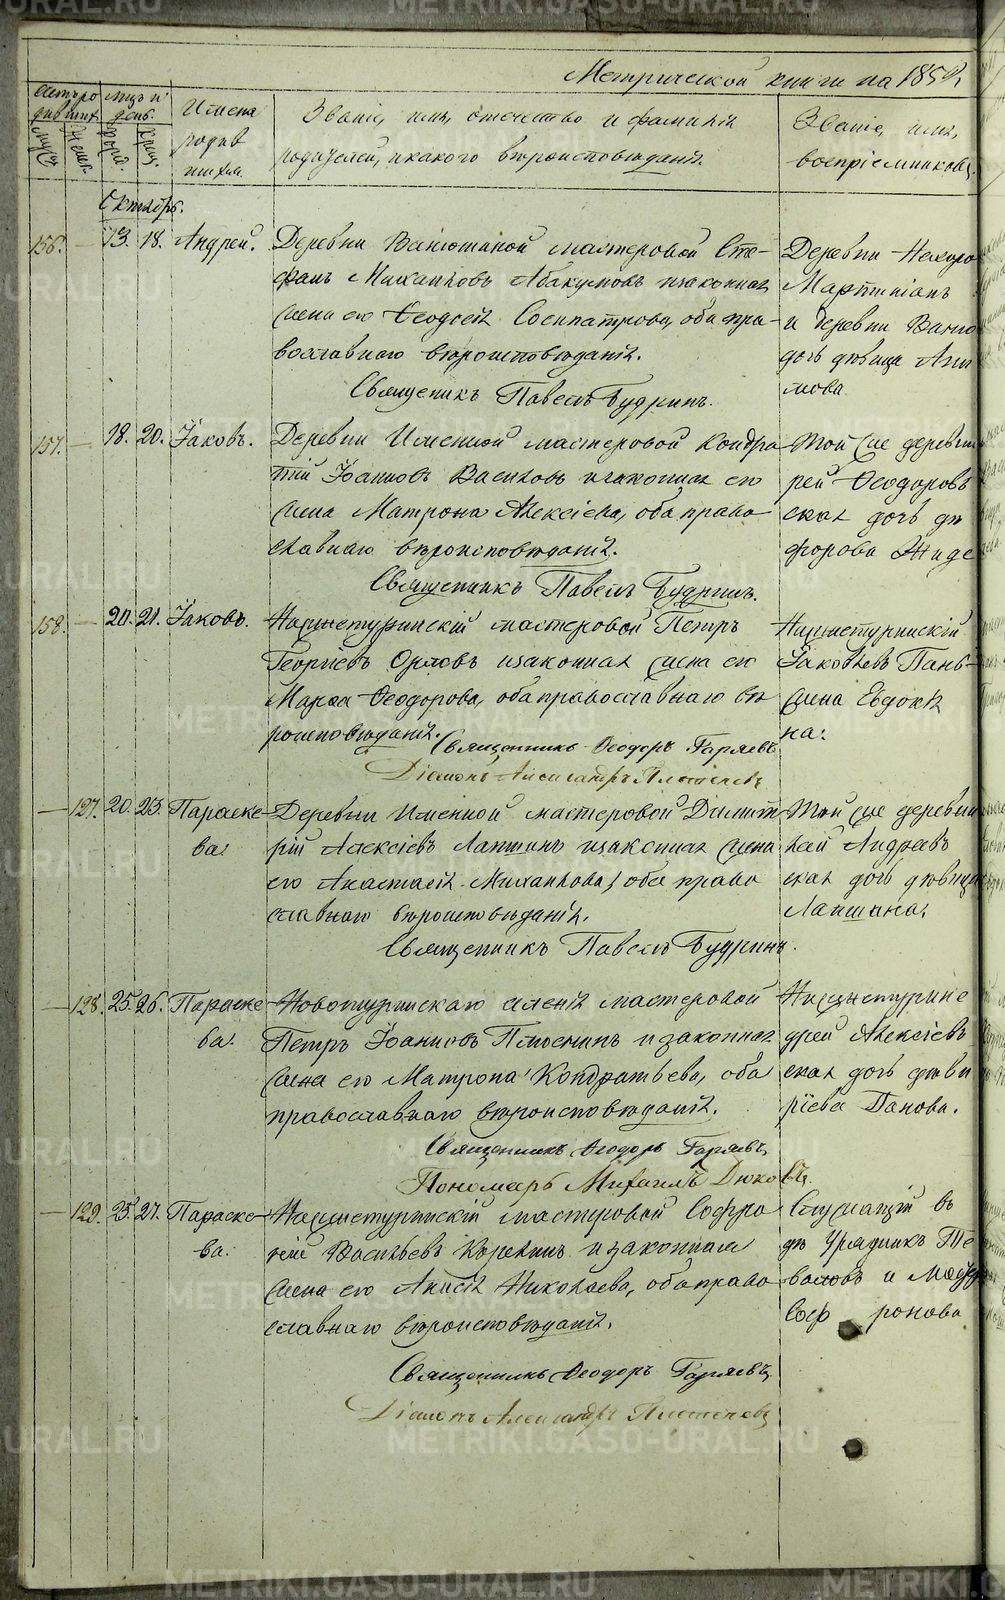 METRIKI.GASO-URAL.RU
Метрической книги на 1859,
Счетъ ро
дившихс.
Мѣц. и
день.
Имена
родив
шихся.
Званіе, имя, отечество и фамилія
родителей, и какого вѣроисповѣданія.
Званіе, имя,
воспріемниковъ.
Муж.
Женс.
Рожд.
Крещ.
Октябрь.
156. — 13. 18. Андрей.
Деревни мастеровой Сте-
фанъ Михаиловъ Абакумовъ и законная
жена его Ѳеодосія Сосипатрова, оба пра-
вославнаго вѣроисповѣданія.
Священикъ Павелъ Будринъ.
Деревни
Мартиніанъ
и деревни
дочь дѣвица
мова
157. — 18. 20. Іаковъ.
Деревни Именной мастеровой Кондра
тій Іоанновъ Василовъ и законная его
жена Матрона Алексіева, оба право
славнаго вѣроисповѣданія.
Священикъ Павелъ Будринъ.
Той же деревни
рей Ѳеодоровъ
ская дочь дѣ
форова
158. — 20. 21. Іаковъ.
Нижнетуринскій мастеровой Петръ
Георгіевъ Орловъ и законная жена его
Марѳа Ѳеодорова, оба православнаго вѣ
роисповѣданія.
Священникъ Ѳеодоръ Гаряевъ
Діаконъ Александръ
Нижнетуринскій
Іаковлевъ Пань-
жена Евдокія
на.
— 127. 20. 23. Параске
ва.
Деревни Именной мастеровой Димит
рій Алексіевъ Лапшинъ и законная жена
его Анастасія Михаилова, оба право
славнаго вѣроисповѣданія.
Священикъ Павелъ Будринъ.
Той же деревни
лай Андреевъ
ская дочь дѣвица
Лапшина.
— 128. 25. 26. Параске
ва.
Новотуринскаго селенія мастеровой
Петръ Іоанновъ и законная
жена его Матрона Кондратьева, оба
православнаго вѣроисповѣданія.
Священникъ Ѳеодоръ Гаряевъ
Пономарь Михаилъ Дюковъ.
Нижнетуринс
дрей Алексіевъ
ская дочь дѣви
ріева Панова.
— 129. 25. 27. Параске
ва.
Нижнетуринскій мастеровой Софро
ній Васильевъ Корелинъ и законная
жена его Анисія Николаева, оба право
славнаго вѣроисповѣданія.
Священникъ Ѳеодоръ Гаряевъ
Діаконъ Александръ
Служащій въ
дѣ Урядникъ
валовъ и
Соф ронова